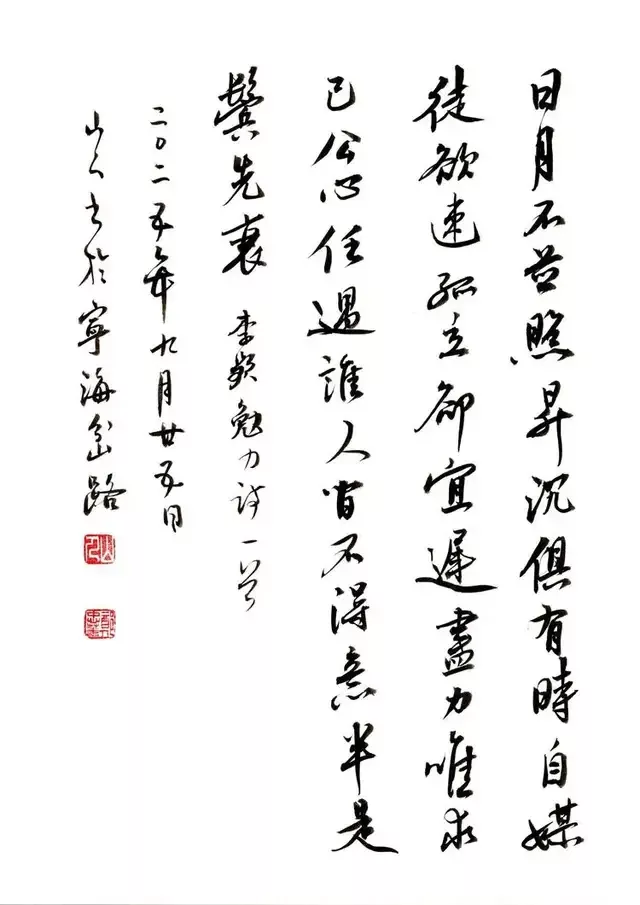 日月不並照昇沉俱有時自媒
徒欲速孤立卻宜遲盡力唯求
己公心任遇誰人間不得意半是
鬢先衰 李頻勉力诗一首
二〇二五年九月廿五日
山人书於寧海岔路
山人